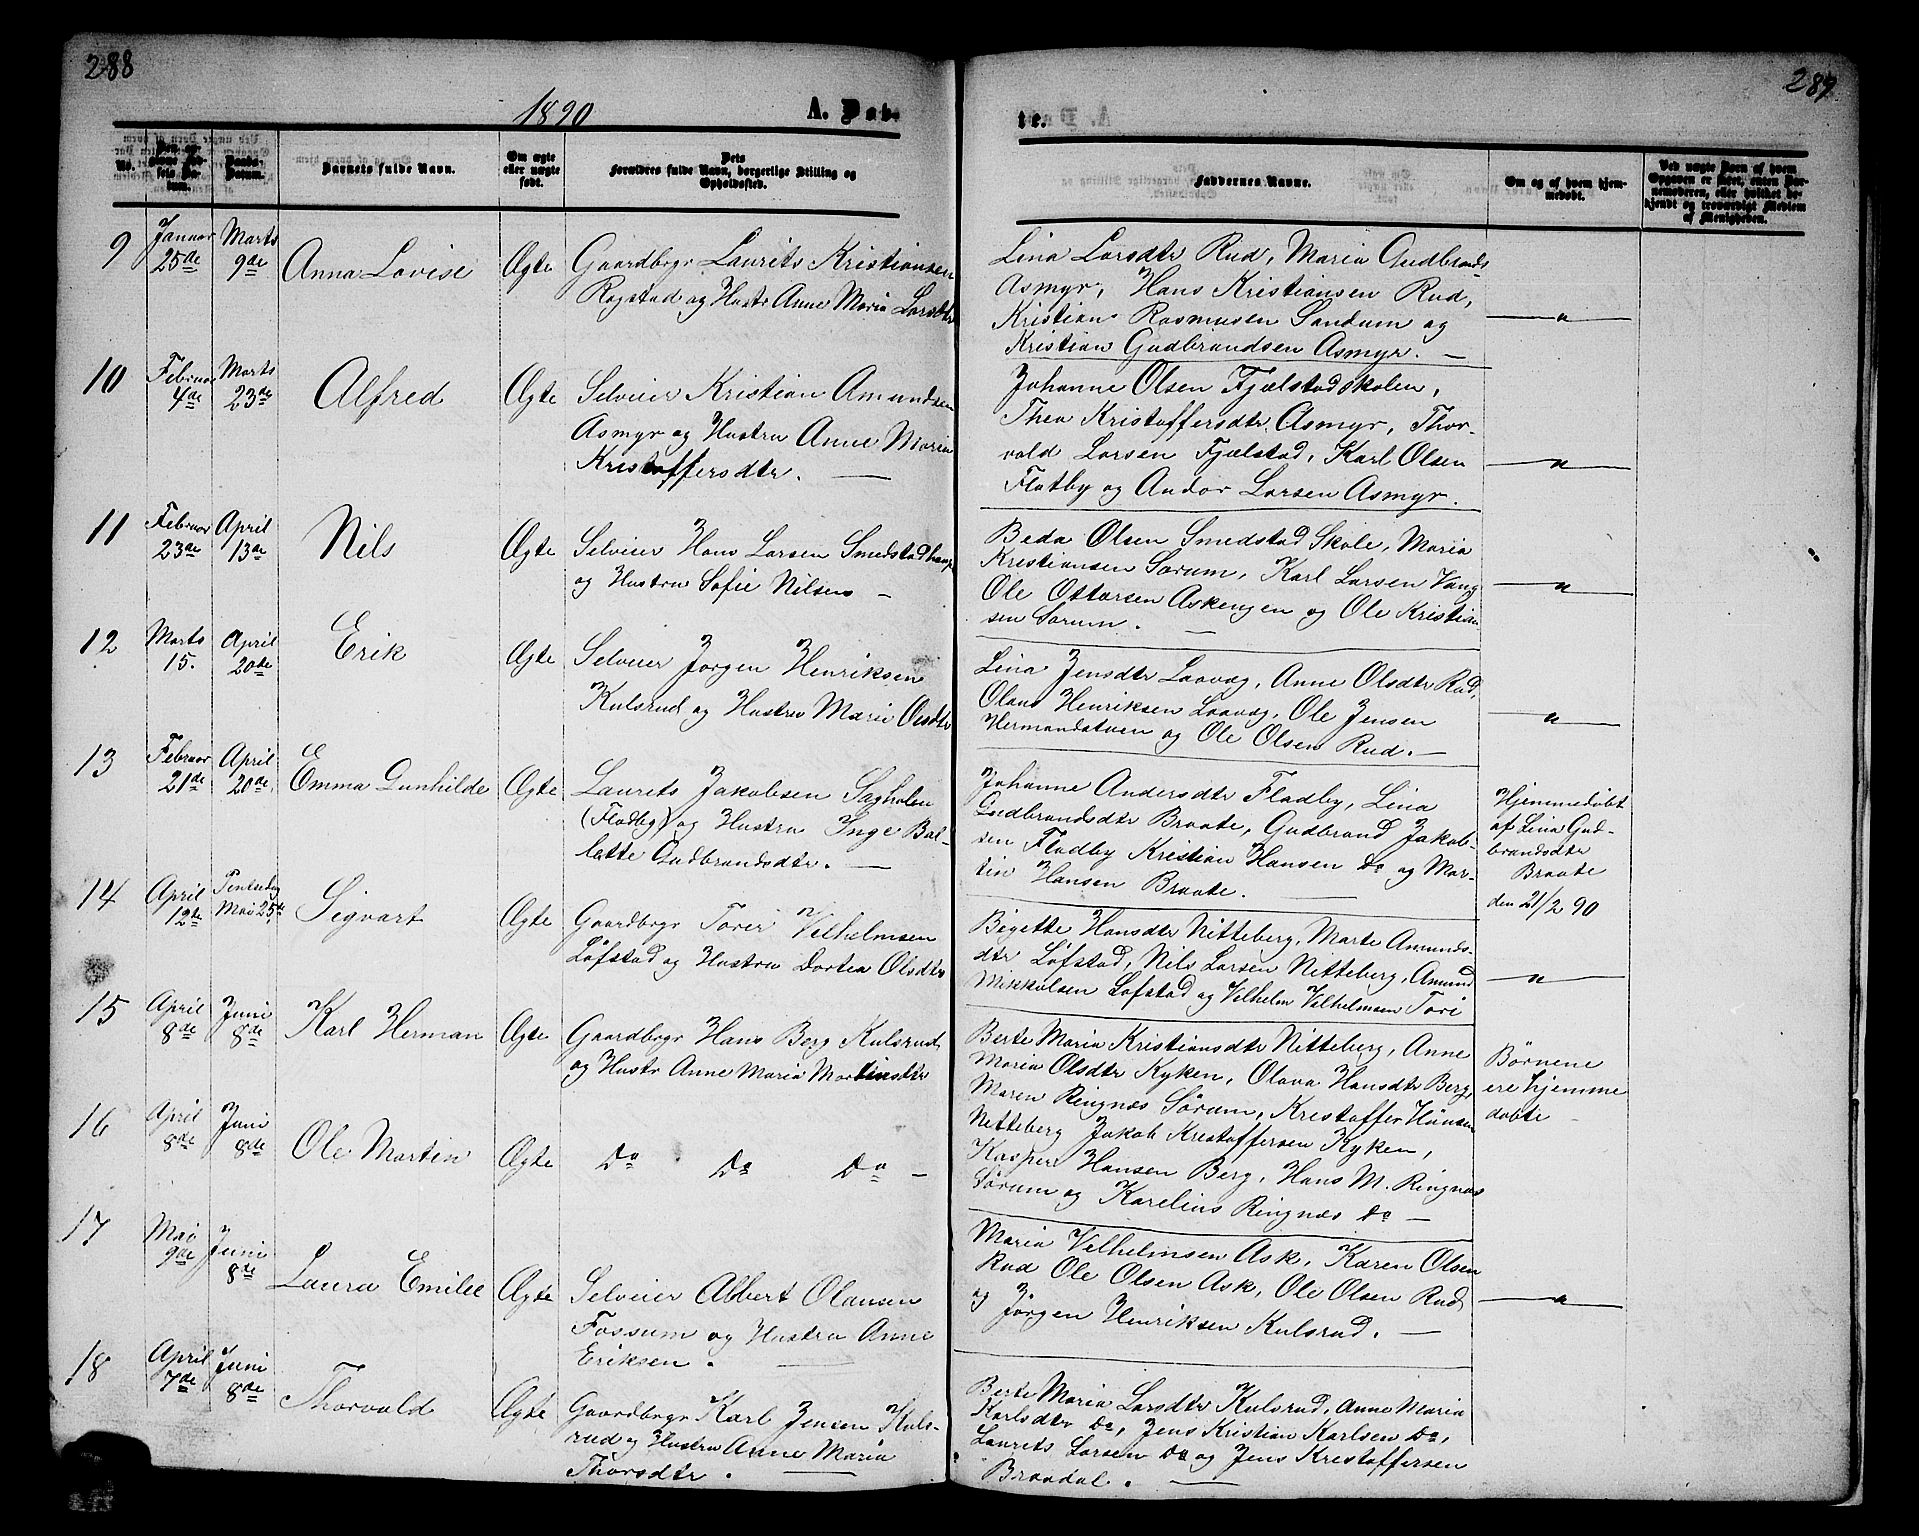 288
1890
A. Døb-
No.
Den an-
givne Fød-
sels Da-
tum.
Daabs-
Datum.
Barnets fulde Navn.
Om ægte
eller uægte
født.
Dets
Forældres fulde Navn, borgerlige Stilling og
Opholdssted.
9
Januar
25de
Marts
9de
Anna Lovise
Ægte
Gaardbrgr Laurits Kristiansen
Rogstad og Hustr Anne Maria Larsdtr
10
Februar
4de
Marts
23de
Alfred
Ægte
Selveier Kristian Amundsen
Asmyr og Hustru Anne Maria
Kristoffersdtr. —
11
Februar
23de
April
13de
Nils
Ægte
Selveier Hans Larsen Smedstadhaug
og Hustru Sofie Nilsen —
12
Marts
15.
April
20de
Erik
Ægte
Selveier Jørgen Henriksen
Kulsrud og Hustru Maria Olsdtr
13
Februar
21de
April
20de
Emma Gunhilde
Ægte
Laurits Jakobsen Sagholen
(Fladby) og Hustru Inge Bol-
lette Gudbrandsdtr. —
14
April
12te
Pintsedag
Mai 25de
Sigvart
Ægte
Gaardbrgr Torer Vilhelmsen
Løfstad og Hustru Dortea Olsdtr
15
April
8de
Juni
8de
Karl Herman
Ægte
Gaardbrgr Hans Berg Kulsrud
og Hustr Anne Maria Martinsdtr
16
April
8de
Juni
8de
Ole Martin
Ægte
Do Do Do —
17
Mai
9de
Juni
8de
Laura Emilie
Ægte
Selveier Albert Olausen
Fossum og Hustru Anne
Eriksen. —
18
April
7de
Juni
8de
Thorvald
Ægte
Gaardbrgr Karl Jensen Kuls-
rud og Hustru Anne Maria
Thorsdtr. —
289
te.
Faddernes Navne.
Om og af hvem hjem-
medøbt.
Ved uægte Børn af hvem
Opgaven er skeet, enten Bar-
nemoderen, eller hvilket be-
kjendt og troværdigt Medlem
af Menigheden.
Lina Larsdtr Rud, Maria Gudbrands
Asmyr, Hans Kristiansen Rud,
Kristian Rasmusen Sandum og
Kristian Gudbrandsen Asmyr. —
— " —
Johanne Olsen Fjælstadskolen,
Thea Kristoffersdtr Asmyr, Thor-
vald Larsen Fjælstad, Karl Olsen
Flatby og Andor Larsen Asmyr.
— " —
Beda Olsen Smedstad Skole, Maria
Kristiansen Sørum, Karl Larsen Vang
Ole Ottersen Askengen og Ole Kristian
sen Sørum. —
— " —
Lina Jensdtr Laavæg, Anne Olsdtr Rud,
Olaus Henriksen Laavæg, Ole Jensen
Hermandstuen og Ole Olsen Rud. —
— " —
Johanne Andersdtr Fladby, Lina
Gudbrandsdtr Braate, Gudbrand Jakob-
sen Fladby Kristian Hansen Do og Mar-
tin Hansen Braate. —
Hjemmedøbt
af Lina Gud-
brandsdtr
Braate
den 21/2 90
Bigette Hansdtr Nitteberg, Marte Amunds-
dtr Løfstad, Nils Larsen Nitteberg, Amund
Mikkelsen Løfstad og Vilhelm Vilhelmsen Tori
— " —
Berte Maria Kristiansdtr Nitteberg, Anne
Maria Olsdtr Kyken, Olava Hansdtr Berg,
Maren Ringnæs Sørum, Kristoffer Hansen
Nitteberg Jakob Kristoffersen Kyken,
Kasper Hansen Berg, Hans M. Ringnæs
Sørum og Karelius Ringnæs Do —
Børnene
ere hjemme
døbte —
Maria Vilhelmsen Ask, Karen Olsen
Rud Ole Olsen Ask, Ole Olsen Rud
og Jørgen Henriksen Kulsrud. —
— " —
Berte Maria Larsdtr Kulsrud, Anne Maria
Karlsdtr Do, Jens Kristian Karlsen Do,
Laurits Larsen Do og Jens Kristoffersen
Braadal. —